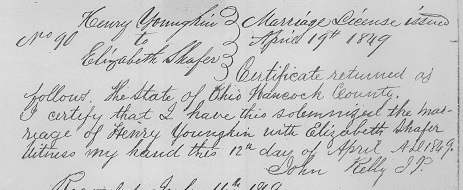 Henry Youngkin } Marriage License issued
No 90 to } April 19th 1849
Elizabeth Shafer }
Certificate returned as
follows. The State of Ohio Hancock County.
I certify that I have this solemnized the mar-
riage of Henry Youngkin with Elizabeth Shafer
Witness my hand this 12th day of April A.D 1849.
John Kelly J.P.
July 11th